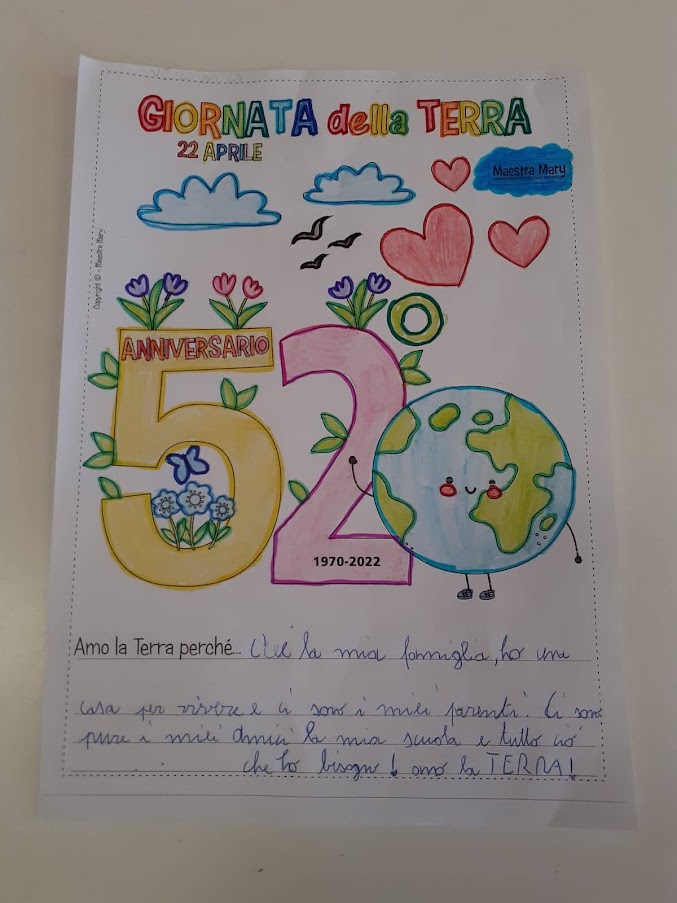 GIORNATA della TERRA
22 APRILE
Maestra Mary
Copyright © - Maestra Mary
ANNIVERSARIO
52°
1970-2022
Amo la Terra perché... C'é la mia famiglia, ho una
casa per vivere e ci sono i miei parenti. Ci sono
pure i miei amici la mia scuola e tutto ció
che ho bisogno! amo la TERRA!